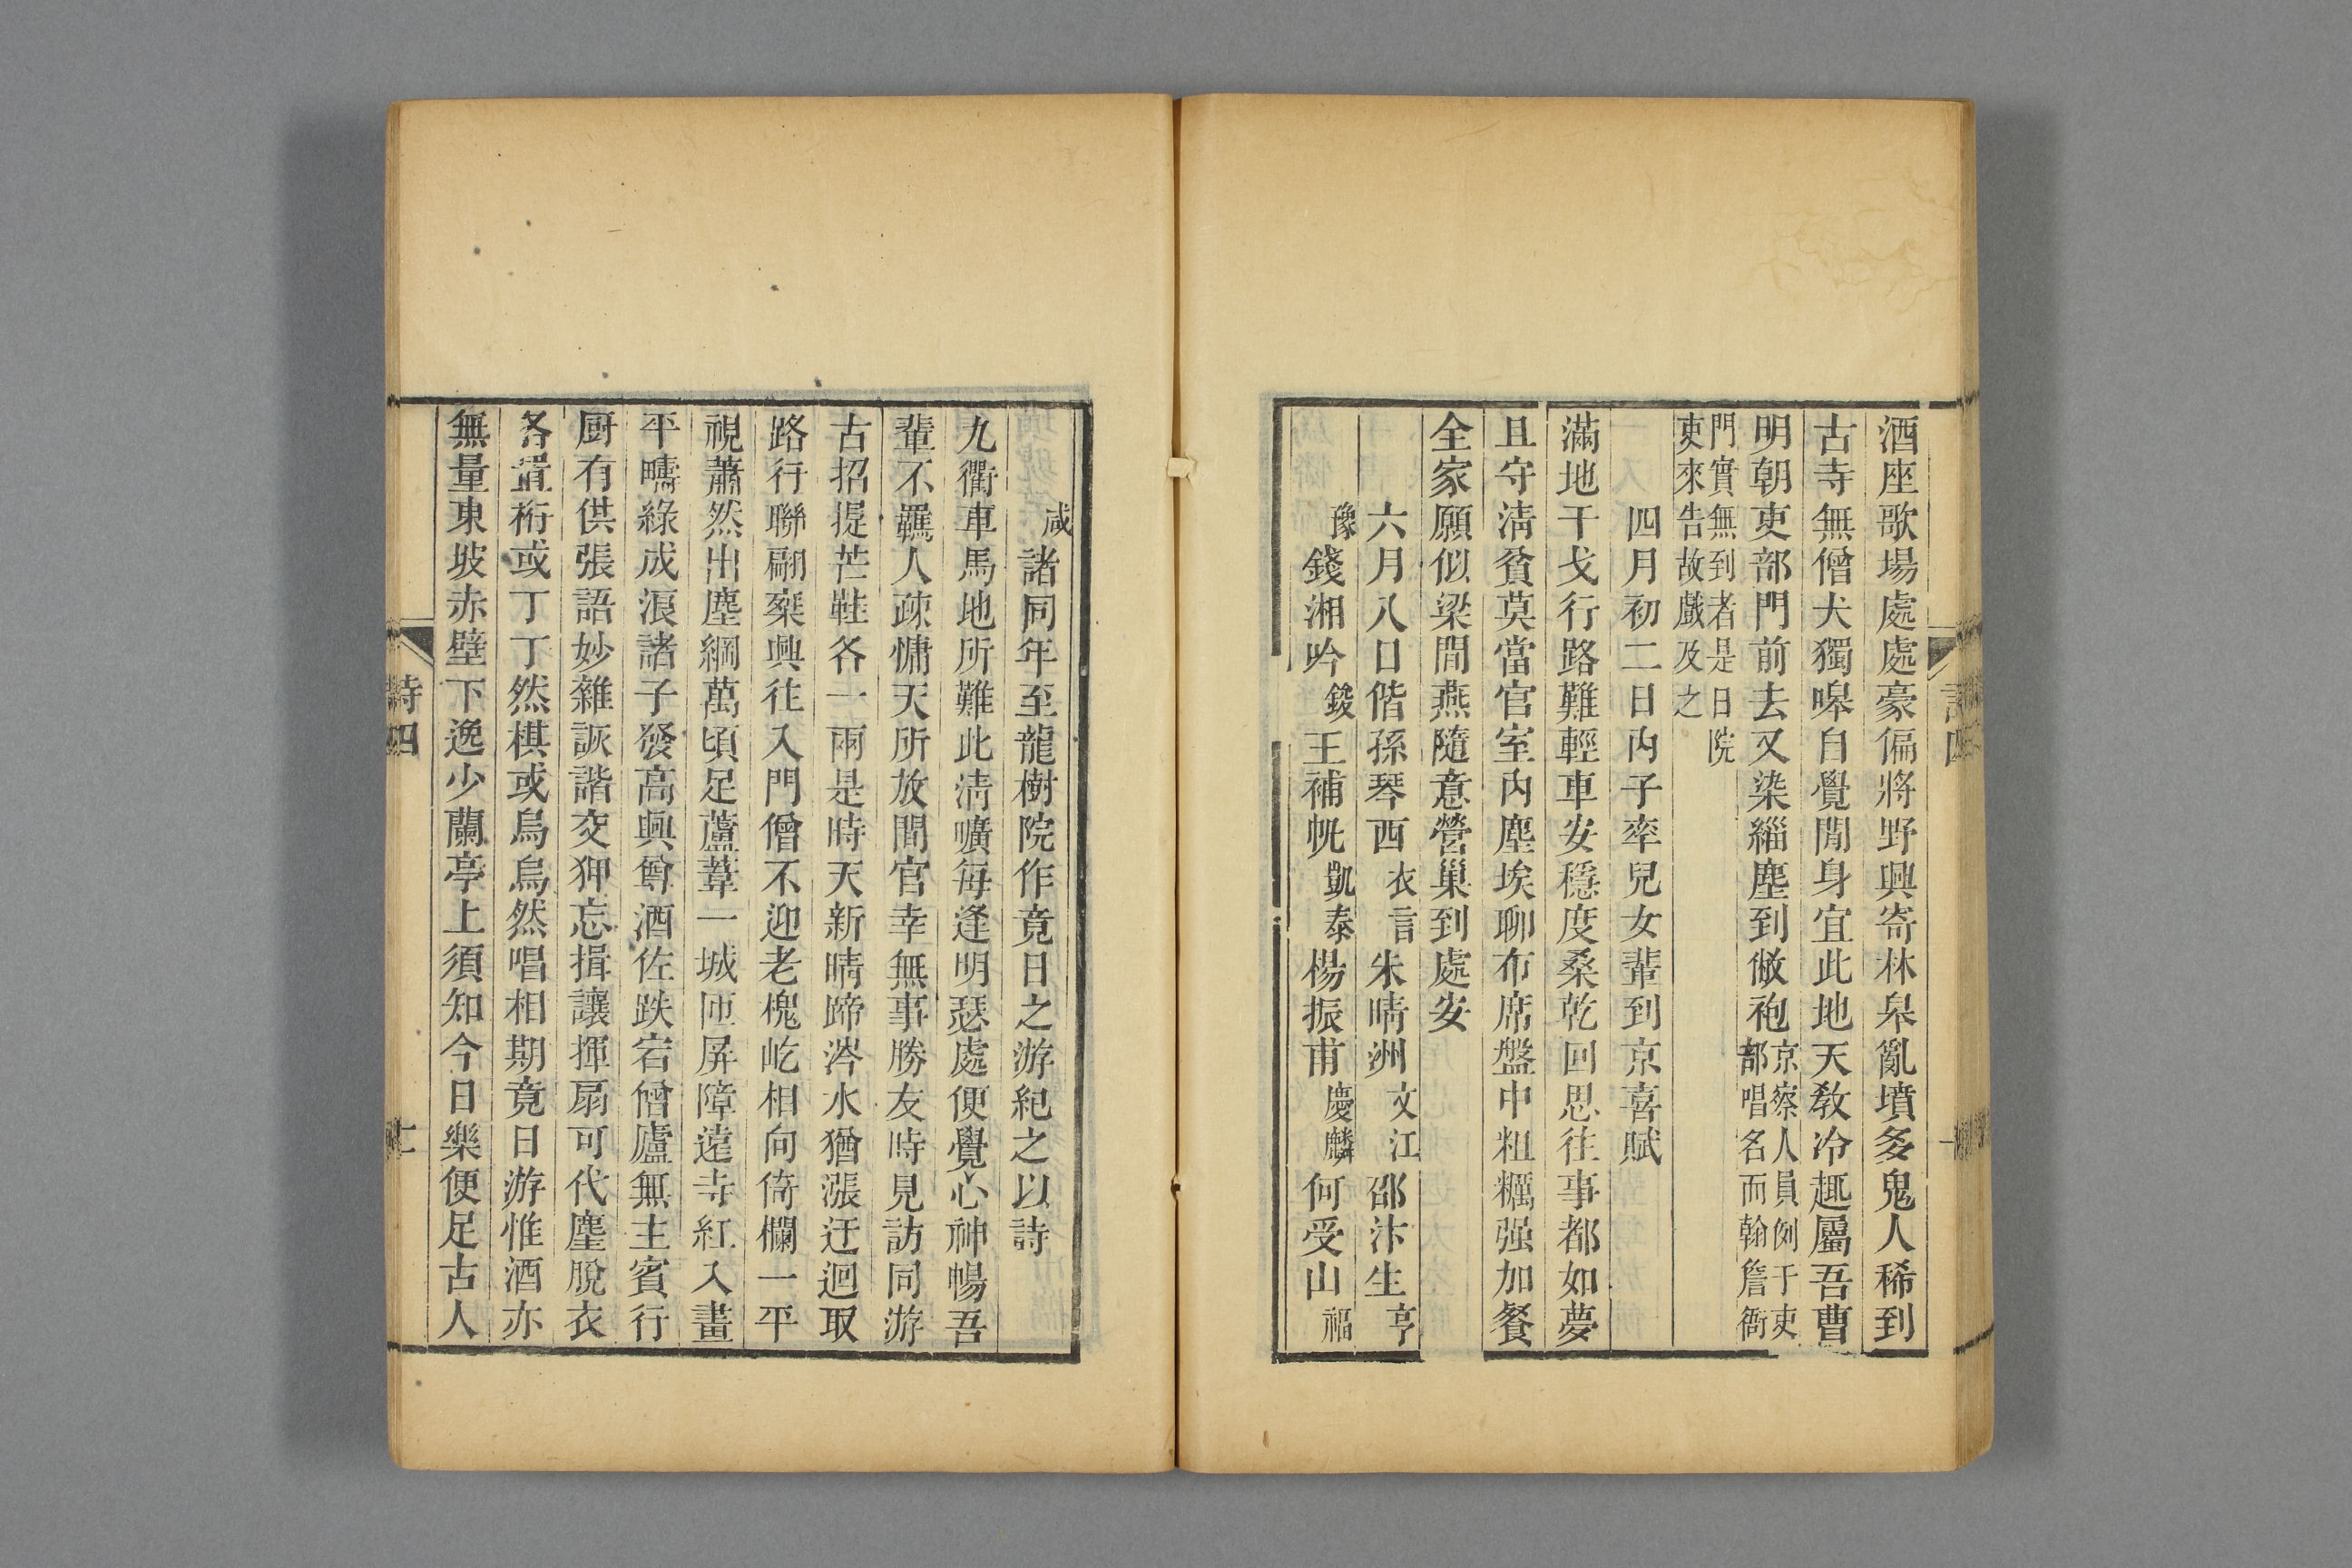 酒座歌場處處豪偏將野興寄林臯亂墳多鬼人稀到
古寺無僧犬獨嘷自覺閒身宜此地天教冷趣屬吾曹
明朝吏部門前去又染緇塵到敝袍京察人員例于吏
部唱名而翰詹衙
門實無到者是日院
吏來告故戲及之
四月初二日内子率兒女輩到京喜賦
滿地干戈行路難輕車安穩度桑乾回思往事都如夢
且守淸貧莫當官室内塵埃聊布席盤中粗糲强加餐
全家願似梁間燕隨意營巢到處安
六月八日偕孫琴西衣言朱晴洲文江邵汴生亨
豫錢湘吟錢王補帆凱泰楊振甫慶麟何受山福
咸諸同年至龍樹院作竟日之游紀之以詩
九衢車馬地所難此淸曠每逢明瑟處便覺心神暢吾
輩不羈人疎慵天所放閒官幸無事勝友時見訪同游
古招提芒鞋各一兩是時天新晴蹄涔水猶漲迂迴取
路行聯翩乘興往入門僧不迎老槐屹相向倚欄一平
視蕭然出塵網萬頃足蘆葦一城匝屏障遠寺紅入畫
平疇綠成浪諸子發高興尊酒佐跌宕僧廬無主賓行
厨有供張語妙雜詼諧交狎忘揖讓揮扇可代麈脫衣
各置桁或丁丁然棋或烏烏然唱相期竟日游惟酒亦
無量東坡赤壁下逸少蘭亭上須知今日樂便足古人
詩四